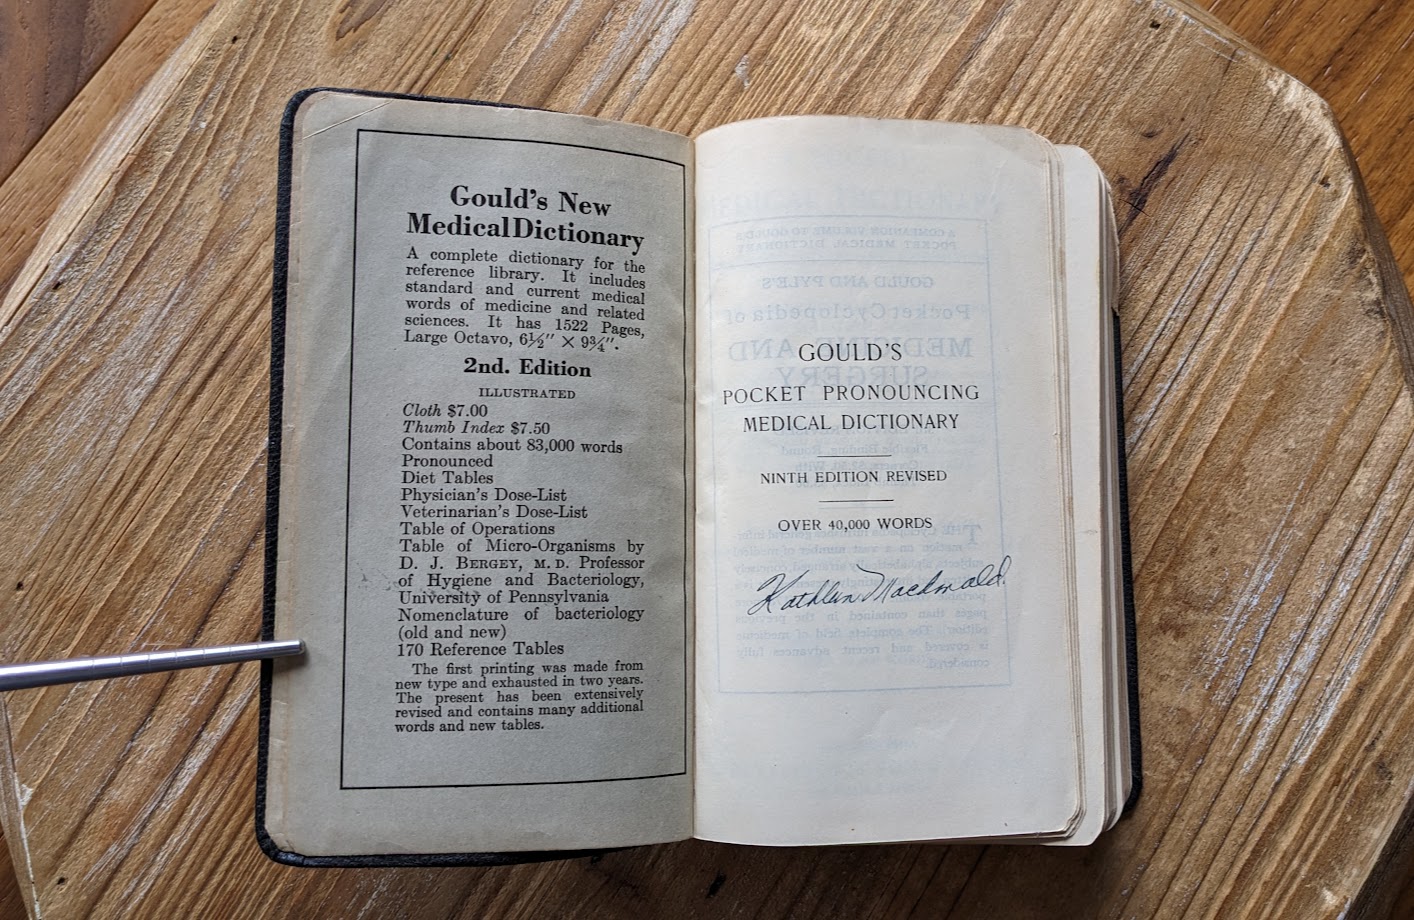 Gould's New
Medical Dictionary
A complete dictionary for the
reference library. It includes
standard and current medical
words of medicine and related
sciences. It has 1522 Pages,
Large Octavo, 6½″ × 9¾″.
2nd. Edition
ILLUSTRATED
Cloth $7.00
Thumb Index $7.50
Contains about 83,000 words
Pronounced
Diet Tables
Physician's Dose-List
Veterinarian's Dose-List
Table of Operations
Table of Micro-Organisms by
D. J. BERGEY, M. D. Professor
of Hygiene and Bacteriology,
University of Pennsylvania
Nomenclature of bacteriology
(old and new)
170 Reference Tables
The first printing was made from
new type and exhausted in two years.
The present has been extensively
revised and contains many additional
words and new tables.
GOULD'S
POCKET PRONOUNCING
MEDICAL DICTIONARY
NINTH EDITION REVISED
OVER 40,000 WORDS
Kathleen Macdonald.